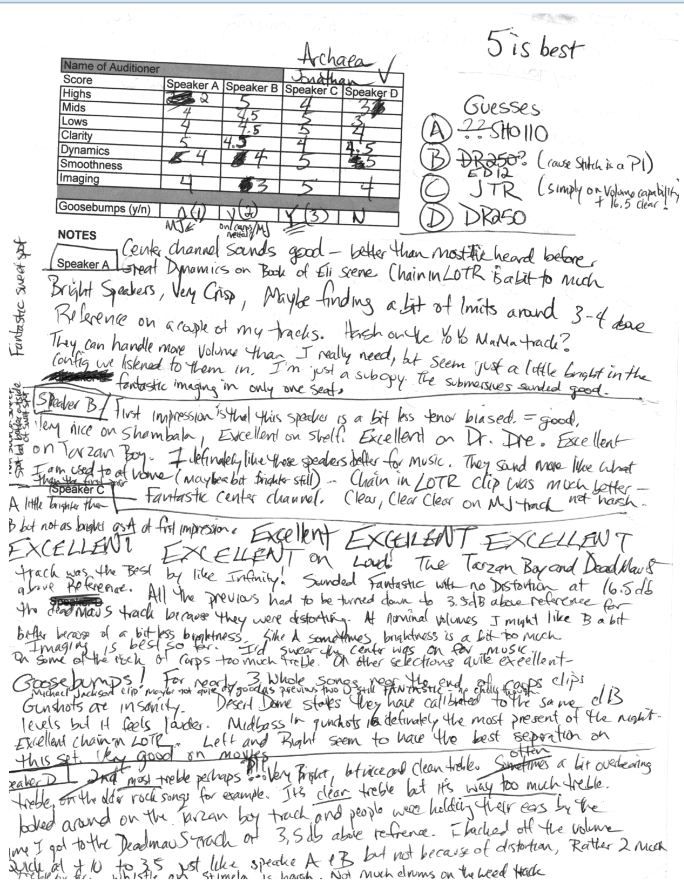 Archaea
5 is best
Name of Auditioner Jonathan V
Score Speaker A Speaker B Speaker C Speaker D
Highs 2 5 4 3
Mids 4 4.5 5 3
Lows 4 4.5 5 4
Clarity 5 4.5 4 4.5
Dynamics 4 4 5 5
Smoothness
Imaging 4 3 5 4
Goosebumps (y/n) (1) Y (2) Y (3) N
MJ
Guesses
A ?? SHO110
B DR250? (cause Stitch is a PI)
ED12
C JTR (simply on volume capability
+ 16.5 clear!
D DR250
NOTES
Fantastic sweet spot
Speaker A Center channel sounds good - better than most I've heard before
Great Dynamics on Book of Eli scene Chain in LOTR is a bit to much
Bright Speakers, Very Crisp, Maybe finding a bit of limits around 3-4 above
Reference on a couple of my tracks. Harsh on the Yo Yo MaMa track?
They can handle more volume than I really need, but seem just a little bright in the
config we listened to them in. I'm just a sub guy. The submersives sounded good.
fantastic imaging in only one seat.
Speaker B First impression is that this speaker is a bit less tenor biased. = good,
Very nice on Shambala, Excellent on shelf. Excellent on Dr. Dre. Excellent
on Tarzan Boy. I definately like these speakers better for music. They sound more like what
I am used to at home (maybe a bit brighter still) - Chain in LOTR clip was much better -
than the first pair not harsh.
Speaker C Fantastic center channel. Clear, Clear Clear on MJ track
A little brighter than
B but not as bright as A at first impression. Excellent EXCELLENT EXCELLENT
EXCELLENT EXCELLENT on Loud! The Tarzan Boy and DeadMau5
track was the Best by like Infinity! Sounded fantastic with no Distortion at 16.5db
above Reference. All the previous had to be turned down to 3.5dB above reference for
the deadmau5 track because they were distorting. At nominal volumes I might like B a bit
better because of a bit less brightness. Like A sometimes brightness is a bit too much
Imaging is best so far. I'd swear the center was on for music
On some of the rock of corps too much treble. On other selections quite excellent -
Goosebumps! For nearly 3 whole songs near the end of corps clips
Michael Jackson clip maybe not quite as good as previous two Still FANTASTIC -
Gunshots are insanity. Desert Dome states they have calibrated to the same dB
levels but it feels louder. Midbass in gunshots is definately the most present of the night.
Excellent chain in LOTR. Left and Right seem to have the best seperation on
this set. Very good on movies
Speaker D 2nd most treble perhaps Very Bright, but nice and clean treble. Sometimes often a bit overbearing
treble, on the older rock songs for example. It's clear treble but it's way too much treble.
looked around on the Tarzan boy track and people were holding their ears by the
time I got to the Deadmau5 track or 3.5db above refrence. I backed off the volume
quick at +10 to 3.5 just like speaker A & B but not because of distortion, Rather 2 much
is harsh. Not much drums on the weed track